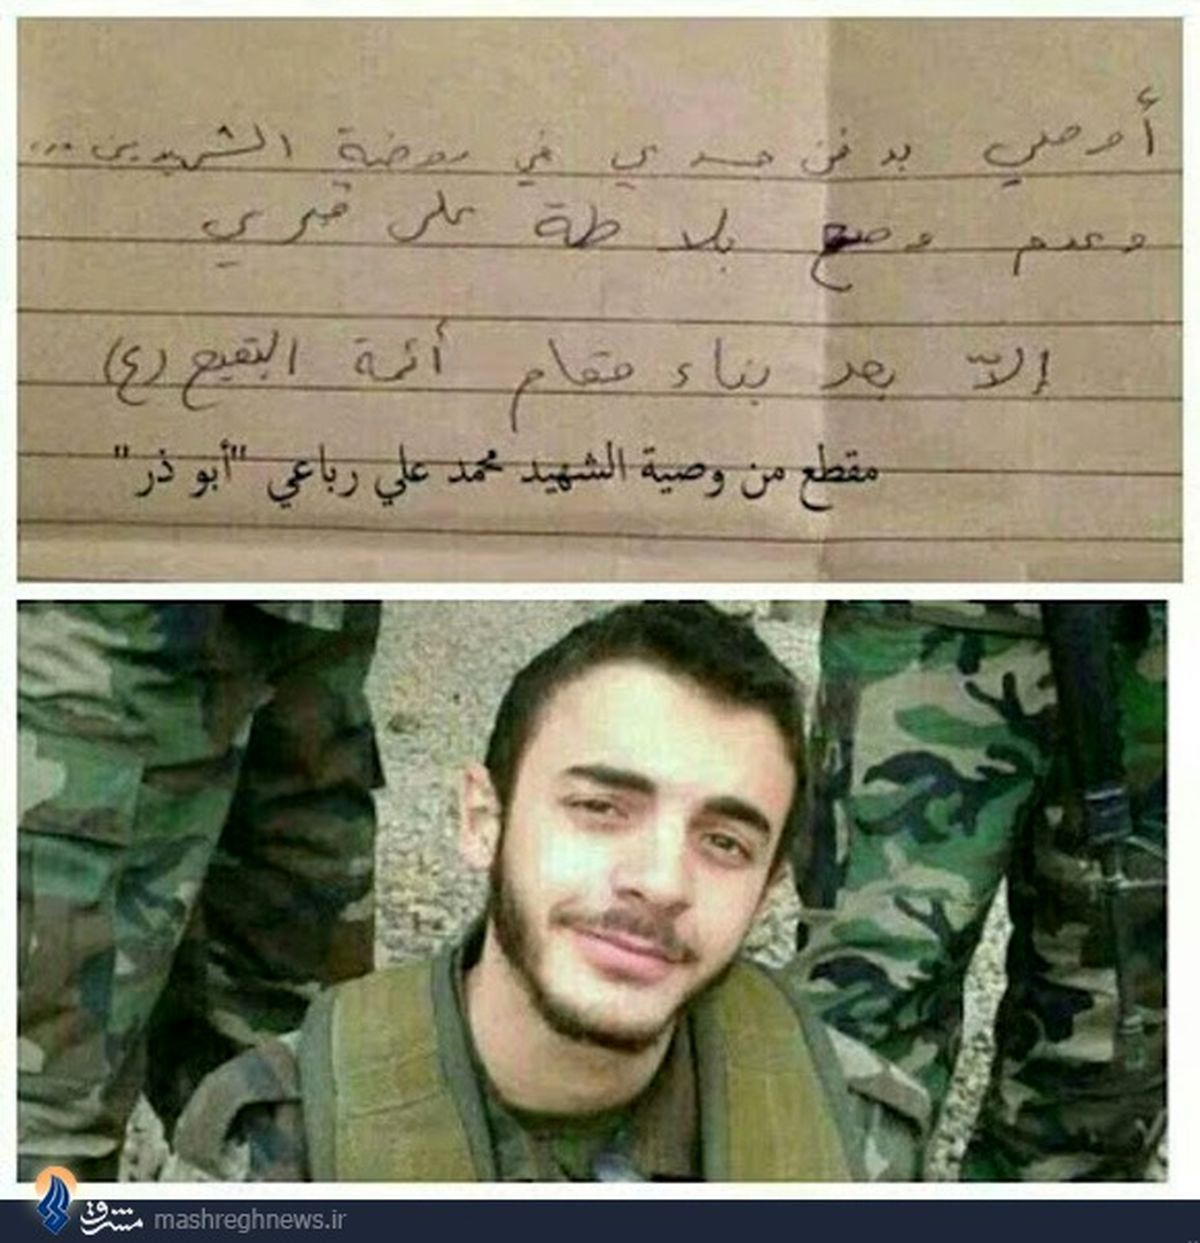 أوصلي بدفن جسدي في روضة الشهيدين...
وعدم وضع بلاطة على قبري
إلاّ بعد بناء مقام أئمة البقيع (ع)
مقطع من وصية الشهيد محمد علي رباعي "أبو ذر"
مشرق mashreghnews.ir